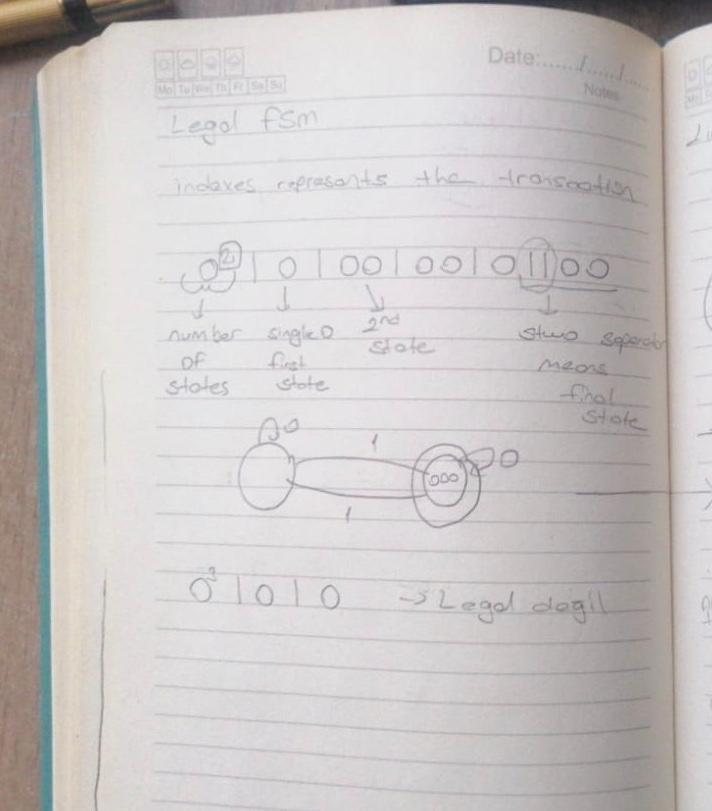 Date:....../....../......
Mo Tu We Th Fr Sa Su
Notes
Legal fsm
indexes represents the transaction
0 2 | 0 | 00 | 00 | 0 11 00
number of states
single 0 first state
2nd state
stwo seperator means final state
0
1
000
0
1
0 | 0 | 0 → Legal dagil